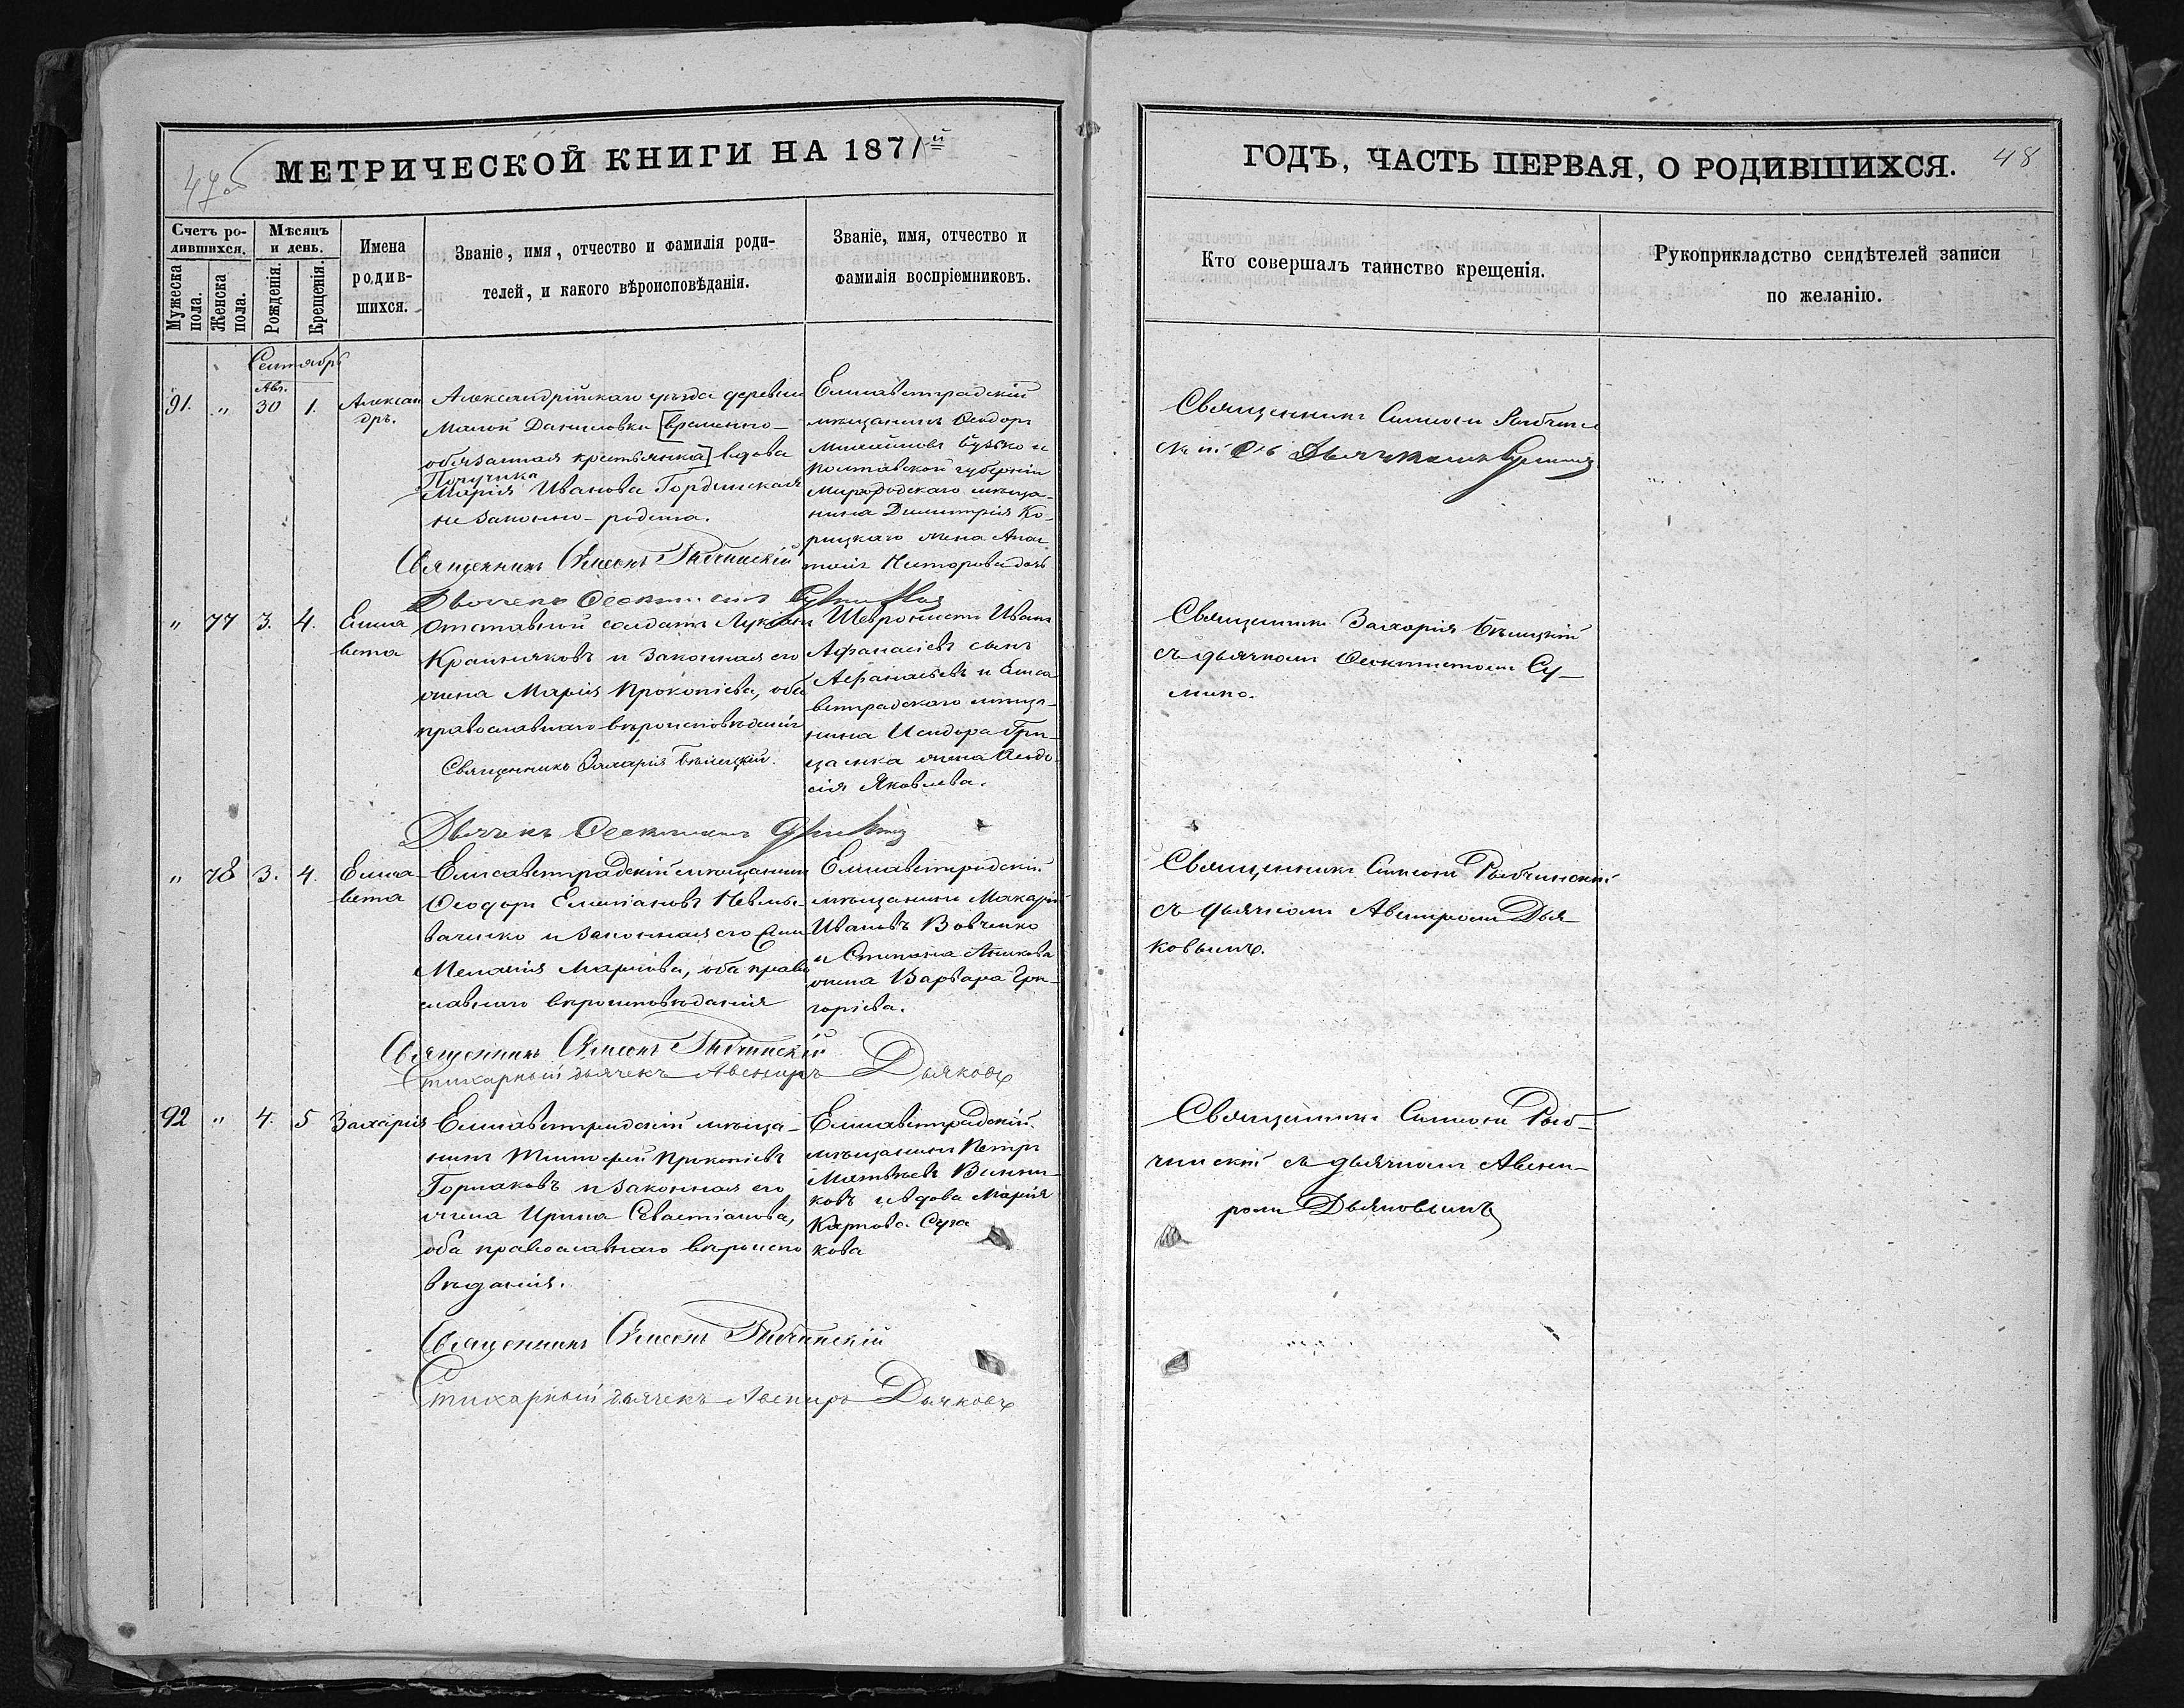 МЕТРИЧЕСКОЙ КНИГИ НА 1871й
47об
Счетъ ро-
дившихся.
Мужеска пола.
Женска пола.
Мѣсяцъ
и день.
Рожденія.
Крещенія.
Имена
родив-
шихся.
Званіе, имя, отчество и фамилія роди-
телей, и какого вѣроисповѣданія.
Званіе, имя, отчество и
фамилія воспріемниковъ.
Сентябрь
91. " Авг. 30 1. Алексан
дръ.
Александрійскаго уѣзда деревни
Малой Даниловки [временно-
обязанная крестьянка] вдова
Поручика
Марія Иванова Гординская
незаконно-родила.
Священникъ Симеонъ Рыбчинскій
Дьячекъ Ѳеоктистъ
Елисаветградскій
мѣщанинъ Ѳеодоръ
Михайловъ Бузько и
Полтавской губерніи
Миргородскаго мѣща-
нина Димитрія Ко-
рицкаго жена Ана
дочь
" 77 3. 4. Елиса
вета
Отставной солдатъ Лукіанъ
Крапивяковъ и законная его
жена Марія Прокопіева, оба
православнаго вѣроисповѣданія
Священникъ Захарія Бѣлицкій.
Дьячекъ Ѳеоктистъ
Шевронистъ Иванъ
Афанасіевъ сынъ
Афанасьевъ и Елиса
ветградскаго мѣща-
нина Исидора Гри-
ценка жена Ѳеодо-
сія Яковлева.
" 78 3. 4. Елиса
вета
Елисаветградскій мѣщанинъ
Ѳеодоръ Емельяновъ
и законная его жена
Меланія оба право
славнаго вѣроисповѣданія
Священникъ Симеонъ Рыбчинскій
Стихарный дьячекъ Авениръ Дьяковъ
Елисаветградскій
мѣщанинъ Макарій
Ивановъ Вовченко
и Степана
жена Варвара Гри-
горіева.
92 " 4. 5 Захарія
Елисаветградскій мѣща-
нинъ Тимофей Прокопіевъ
Горлаковъ и законная его
жена Ирина Севастіанова,
оба православнаго вѣроиспо
вѣданія.
Священникъ Симеонъ Рыбчинскій
Стихарный дьячекъ Авениръ Дьяковъ
Елисаветградскій
мѣщанинъ Петръ
Матвѣевъ Винни-
ковъ и вдова Марія
Карпова
кова
ГОДЪ, ЧАСТЬ ПЕРВАЯ, О РОДИВШИХСЯ.
48
Кто совершалъ таинство крещенія.
Рукоприкладство свидѣтелей записи
по желанію.
Священникъ Симеонъ Рыбчин
скій съ Дьячкомъ
Священникъ Захарія Бѣлицкій
съ дьячкомъ Ѳеоктистомъ Су-
Священникъ Симеонъ Рыбчинскій
съ дьячкомъ Авениромъ Дья
ковымъ.
Священникъ Симеонъ Рыб-
чинскій съ дьячкомъ Авени-
ромъ Дьяковымъ